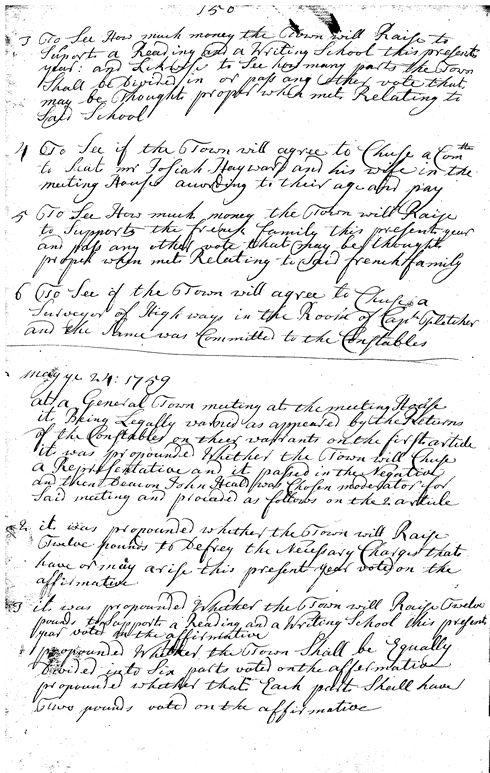 150
3 To See How much money the Town will Raise to
Suport a Reading and a Writing School this present
year: and Likwise to See how many parts the Town
Shall be Divided in or pass any other vote that
may be Thought proper when met Relating to
Said School
4 To See if the Town will agree to Chuse a Comtt
to Seat mr Josiah Hayward and his wife in the
meeting House acording to their age and pay
5 To See How much money the Town will Raise
to Supports the french family this present year
and pass any other vote that may be thought
proper when met Relating to Said french family
6 To See if the Town will agree to Chuse a
Surveyor of High ways in the Room of Capt Fletcher
and the Same was Committed to the Constables
may ye 24: 1759
at a General Town meeting at the meeting House
it Being Legally warned as appeared by the Returns
of the Constables on their warrants on the first article
it was propounded Whether the Town will Chuse
a Representative and it passed in the Negative
an then Deacon John Heald was Chosen moderator for
Said meeting and procied as follows on the 2 article
2 it was propounded whether the Town will Raise
Twelve pounds to Defrey the Nesessary Charges that
have or may arise this present year voted on the
affirmative
3 it was propounded Whether the Town will Raise Twelve
pounds to Support a Reading and a Writing School this present
year voted on the affirmative
propounded Whether the Town Shall be Equally
Divided into Six parts voted on the affermative
propounded whether that Each part Shall have
Two pounds voted on the affirmative